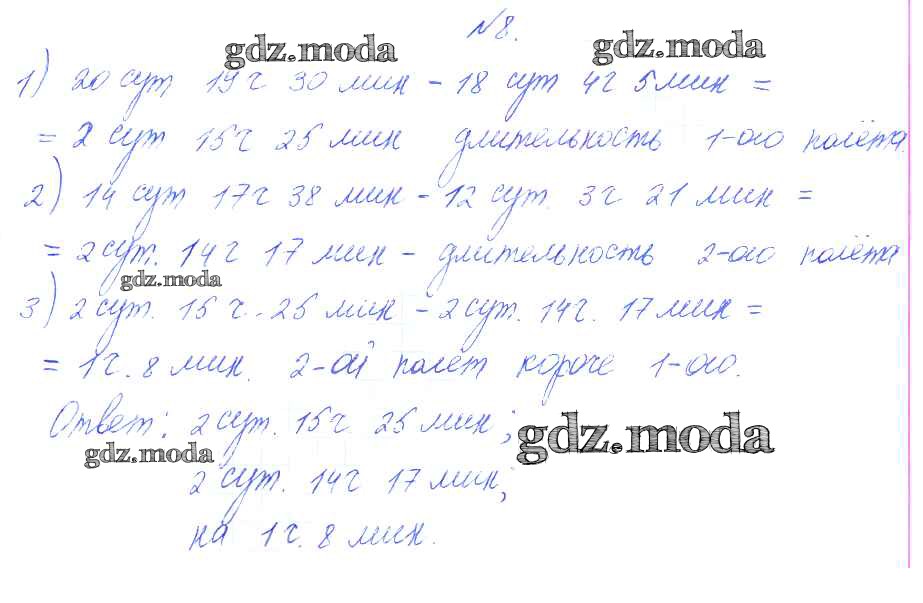 №8.
gdz.moda gdz.moda
1) 20 сут 19 ч 30 мин - 18 сут 4 ч 5 мин =
= 2 сут 15 ч 25 мин длительность 1-ого полёта.
2) 14 сут 17 ч 38 мин - 12 сут. 3 ч 21 мин =
= 2 сут. 14 ч 17 мин - длительность 2-ого полёта
gdz.moda
3) 2 сут. 15 ч. 25 мин - 2 сут. 14 ч. 17 мин =
= 1 ч. 8 мин. 2-ой полёт короче 1-ого.
Ответ: 2 сут. 15 ч 25 мин;
gdz.moda gdz.moda
2 сут. 14 ч 17 мин;
на 1 ч. 8 мин.